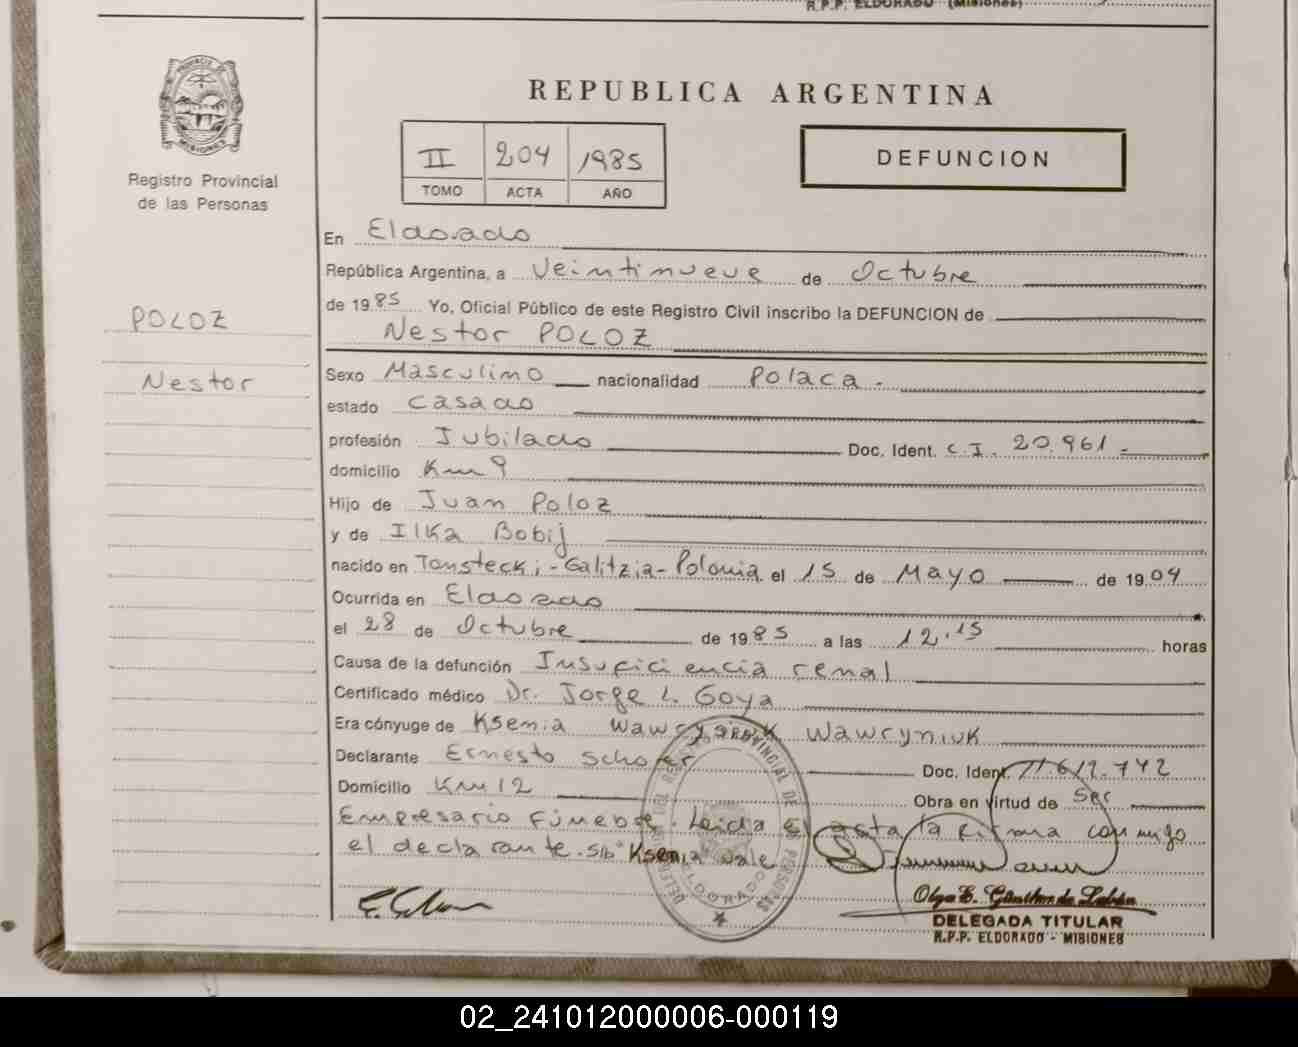 R.P.P. ELDORADO (Misiones)
PROVINCIA DE MISIONES
Registro Provincial
de las Personas
POLOZ
Nestor
REPUBLICA ARGENTINA
II 204 1985
TOMO ACTA AÑO
DEFUNCION
En Eldorado
República Argentina, a Veintinueve de Octubre
de 1985 Yo, Oficial Público de este Registro Civil inscribo la DEFUNCION de
Nestor POLOZ
Sexo Masculino nacionalidad Polaca.
estado casado
profesión Jubilado Doc. Ident. C.I. 20.961
domicilio Km 9
Hijo de Juan Poloz
y de Ilka Bobij
nacido en Tomstecki-Galitzia-Polonia el 15 de Mayo de 1904
Ocurrida en Eldorado
el 28 de Octubre de 1985 a las 12.15 horas
Causa de la defunción Insuficiencia renal
Certificado médico Dr. Jorge L. Goya
Era cónyuge de Ksenia Wawryniuk
Declarante Ernesto Schofer Doc. Ident.
Domicilio Km 12 Obra en virtud de Ser
Empresario Fúnebre. Leida el acta la firma conmigo
el declarante. S/b° Ksenia Vale
DELEGADA TITULAR
R.P.P. ELDORADO - MISIONES
ELDORADO
02_241012000006-000119